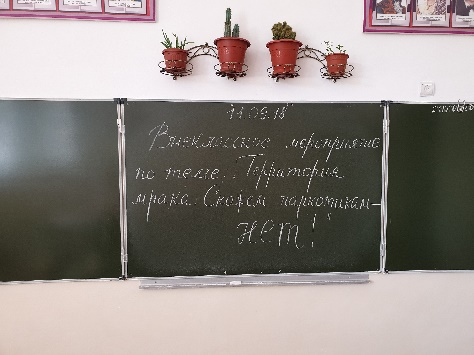 11.09.18
Внеклассное мероприятие
по теме: "Территория
мрака. Скажем наркотикам-
нет!"